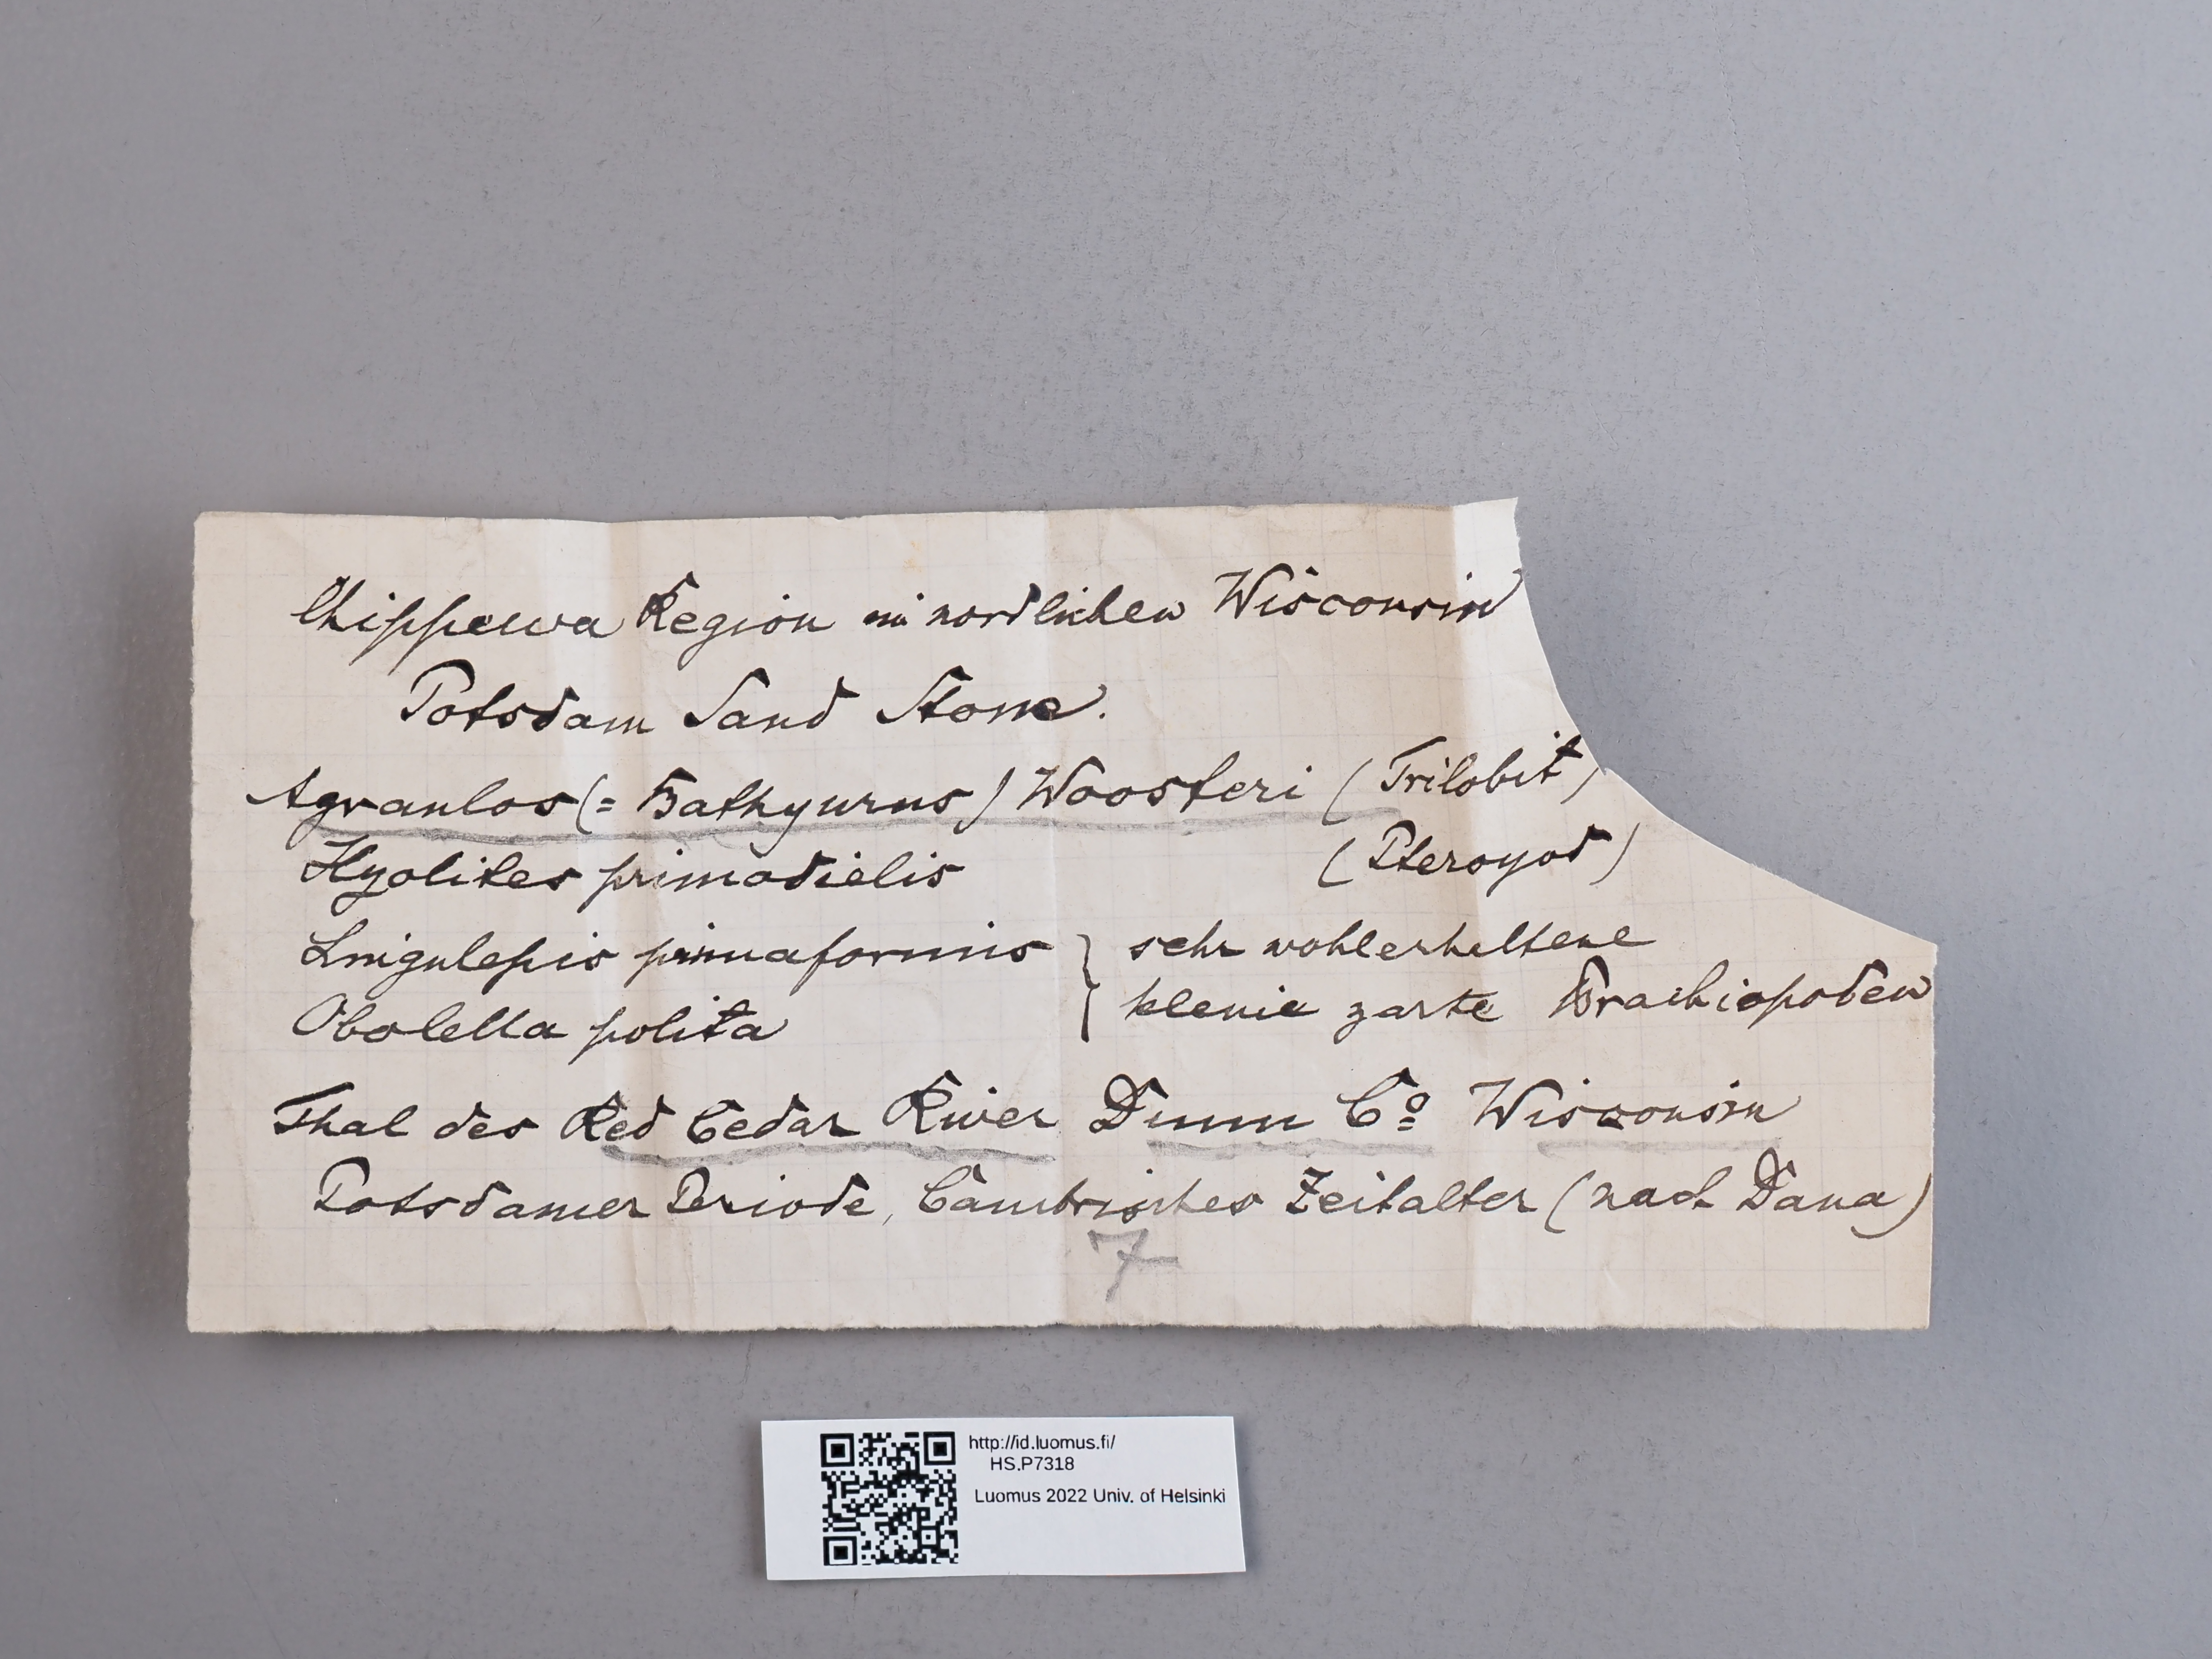 Chippewa Region im nordlichen Wisconsin
Potsdam Sand Stone.
Agraulos (= Bathyurus) Woosteri (Trilobit)
Hyolites primodielis (Pteropod)
Lingulepis pinnaformis } sehr wohlerhaltene
Obolella polita } kleine zarte Brachiopoden
Thal des Red Cedar River Dunn Co Wisconsin
Potsdamer Periode, Cambrisches Zeitalter (nach Dana)
7
http://id.luomus.fi/
HS.P7318
Luomus 2022 Univ. of Helsinki